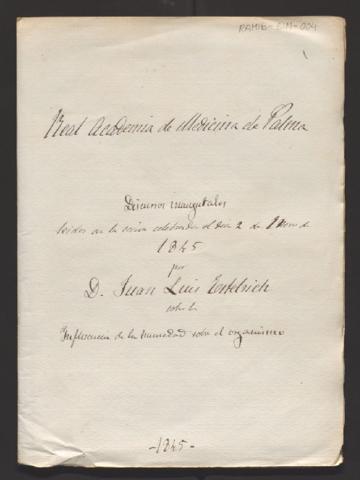 RAMIB-RM-004
Real Academia de Medicina de Palma
Discursos inaugurales
leidos en la sesion celebrada el dia 2 de Enero de
1845
por
D. Juan Luis Estelrich
sobre la
Influencia de la humedad sobre el organismo
-1845-